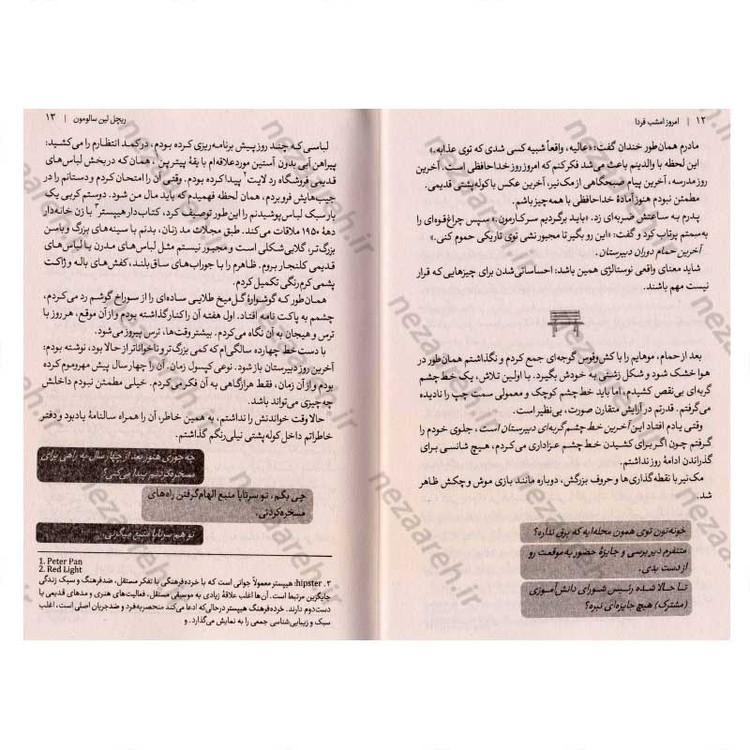 ۱۲ | امروز امشب فردا
مادرم همان‌طور خندان گفت: «عالیه، واقعاً شبیه کسی شدی که توی عذابه.»
این لحظه با والدینم باعث می‌شد فکر کنم که امروز روز خداحافظی است. آخرین
روز مدرسه، آخرین پیام صبحگاهی از مک‌نیر، آخرین عکس با کوله‌پشتی قدیمی.
مطمئن نبودم هنوز آمادهٔ خداحافظی با همه‌چیز باشم.
پدرم به ساعتش ضربه‌ای زد. «باید برگردیم سر کارمون.» سپس چراغ‌قوه‌ای را
به سمتم پرتاب کرد و گفت: «این رو بگیر تا مجبور نشی توی تاریکی حموم کنی.»
آخرین حمام دوران دبیرستان.
شاید معنای واقعی نوستالژی همین باشد: احساساتی‌شدن برای چیزهایی که قرار
نیست مهم باشند.
بعد از حمام، موهایم را با کش‌وقوس گوجه‌ای جمع کردم و نگذاشتم همان‌طور در
هوا خشک شود و شکل زشتی به خودش بگیرد. با اولین تلاش، یک خط چشم
گربه‌ای بی‌نقص کشیدم، اما باید خط چشم کوچک و معمولی سمت چپ را نادیده
می‌گرفتم. قدرتم در آرایش متقارن صورت، بی‌نظیر است.
وقتی یادم افتاد این آخرین خط چشم گربه‌ای دبیرستان است، جلوی خودم را
گرفتم چون اگر برای کشیدن خط چشم عزاداری می‌کردم، هیچ شانسی برای
گذراندن ادامهٔ روز نداشتم.
مک‌نیر با نقطه‌گذاری‌ها و حروف بزرگش، دوباره مانند بازی موش و چکش ظاهر
شد.
خونه‌تون توی همون محله‌ایه که برق نداره؟
متنفرم دیر برسی و جایزهٔ حضور به‌موقعت رو
از دست بدی.
تا حالا شده رئیس شورای دانش‌آموزی
(مشترک) هیچ جایزه‌ای نبره؟
ریچل لین سالومون | ۱۳
لباسی که چند روز پیش برنامه‌ریزی کرده بودم، در کمد انتظارم را می‌کشید:
پیراهن آبی بدون آستین موردعلاقه‌ام با یقهٔ پیتر پن۱، همان که در بخش لباس‌های
قدیمی فروشگاه رد لایت۲ پیدا کرده بودم. وقتی آن را امتحان کردم و دستانم را در
جیب‌هایش فرو بردم، همان لحظه فهمیدم که باید مال من شود. دوستم کربی یک
بار سبک لباس‌پوشیدنم را این‌طور توصیف کرد، کتاب‌دار هیپستر۳ با زن خانه‌دار
دههٔ ۱۹۵۰ ملاقات می‌کند. طبق مجلات مد زنان، بدنم با سینه‌های بزرگ و باسن
بزرگ‌تر، گلابی‌شکلی است و مجبور نیستم مثل لباس‌های مدرن با لباس‌های
قدیمی کلنجار بروم. ظاهرم را با جوراب‌های ساق‌بلند، کفش‌های باله و ژاکت
پشمی کرم‌رنگی تکمیل کردم.
همان‌طور که گوشوارهٔ گل‌میخ طلایی ساده‌ای را از سوراخ گوشم رد می‌کردم،
چشمم به پاکت نامه افتاد. اول هفته آن را کنار گذاشته بودم و از آن موقع، هر روز با
ترس و هیجان به آن نگاه می‌کردم. بیشتر وقت‌ها، ترس پیروز می‌شود.
با دست خط چهارده سالگی‌ام که کمی بزرگ‌تر و ناخواناتر از حالا بود، نوشته بودم:
آخرین روز دبیرستان باز شود. نوعی کپسول زمان، که آن را چهار سال پیش مهروموم کرده
بودم و از آن زمان، فقط هرازگاهی به آن فکر می‌کردم. خیلی مطمئن نبودم داخلش
چه چیزی می‌تواند باشد.
حالا وقت خواندنش را نداشتم، به همین خاطر، آن را همراه سالنامهٔ یادبود و دفتر
خاطراتم داخل کوله‌پشتی نیلی‌رنگم گذاشتم.
چه جوری هنوز بعد از چهار سال یه راهی برای
مسخره‌کردنم پیدا می‌کنی؟
چی بگم، تو سرتاپا منبع الهام‌گرفتن راه‌های
مسخره‌کردنی.
تو هم سرتاپا منبع میگرنی.
1. Peter Pan
2. Red Light
۳. hipster: هیپستر معمولاً جوانی است که با خرده‌فرهنگی با تفکر مستقل، ضدفرهنگ و سبک زندگی
جایگزین مرتبط است. آن‌ها اغلب علاقهٔ زیادی به موسیقی مستقل، فعالیت‌های هنری و مدهای قدیمی یا
دست‌دوم دارند. خرده‌فرهنگ هیپستر درحالی‌که ادعا می‌کند منحصربه‌فرد و ضدجریان اصلی است، اغلب
سبک و زیبایی‌شناسی جمعی را به نمایش می‌گذارد.-و
nezaareh.ir